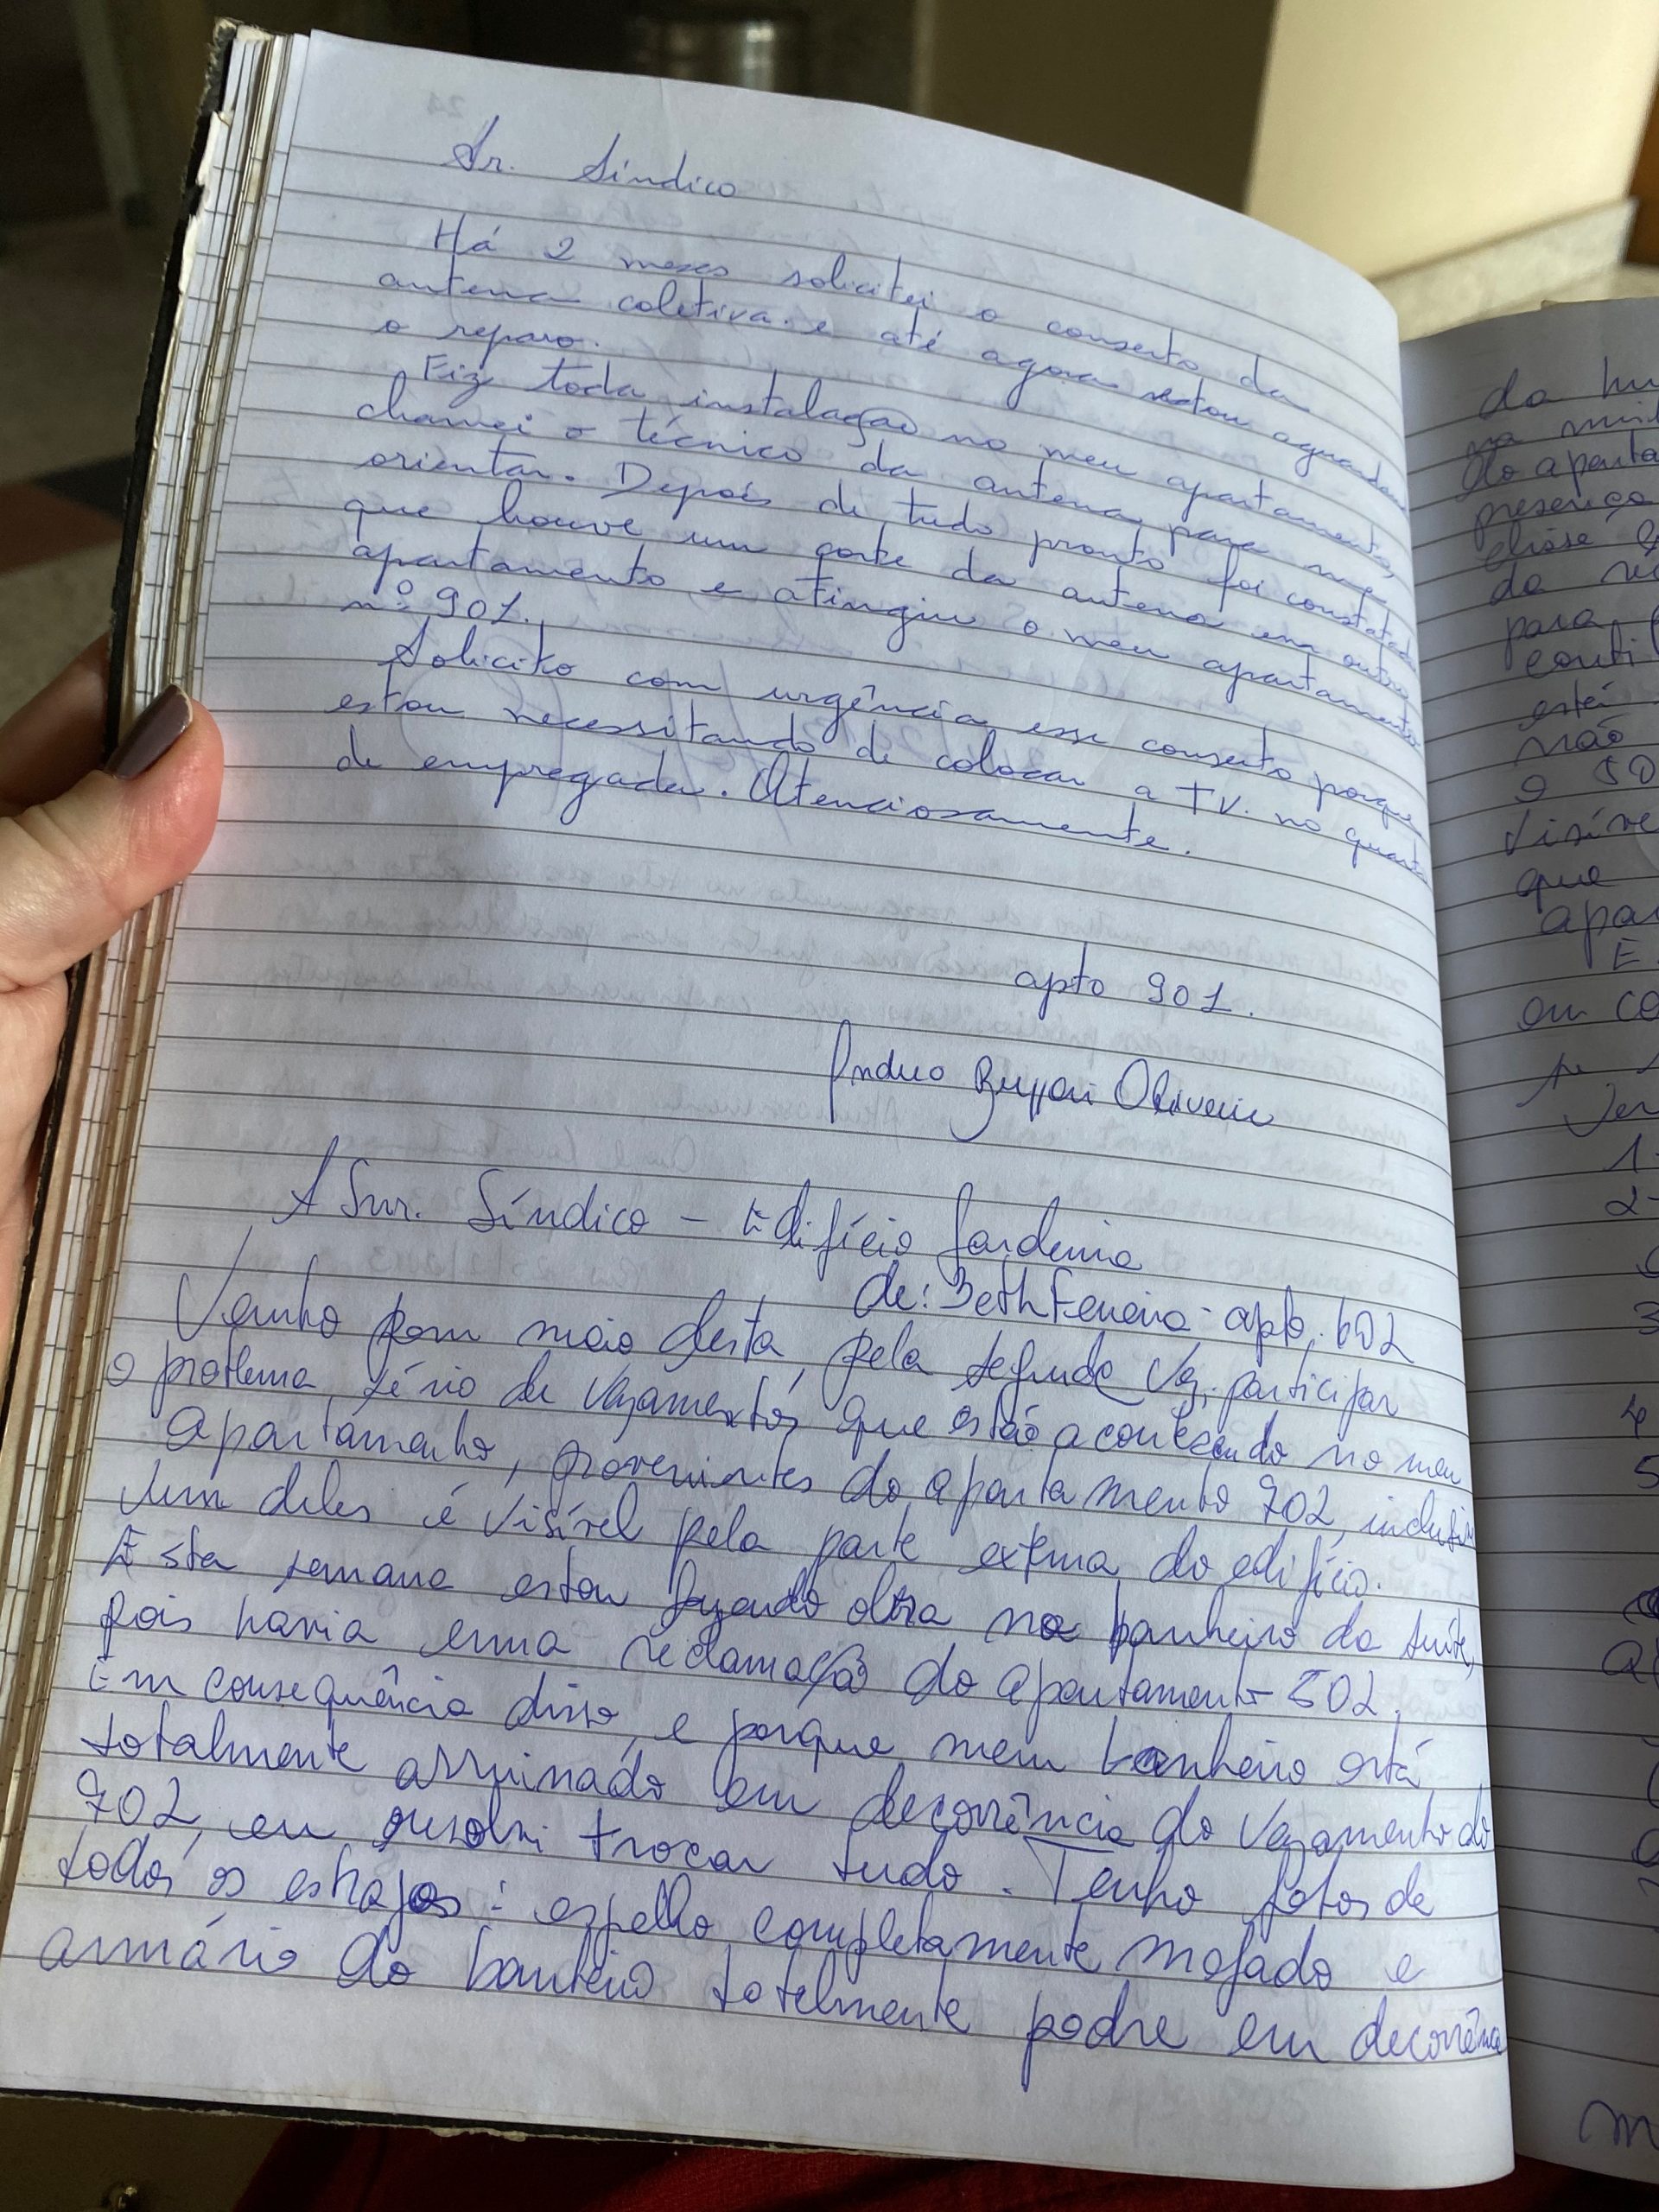 Sr. Síndico
Há 2 meses solicitei o conserto da
antena coletiva. e até agora estou aguardando
o reparo.
Fiz toda instalação no meu apartamento,
chamei o técnico da antena para me
orientar. Depois de tudo pronto foi constatado
que houve um corte da antena em outro
apartamento e atingiu o meu apartamento
nº 901.
Solicito com urgência esse conserto porque
estou necessitando de colocar a TV. no quarto
de empregada. Atenciosamente.
apto 901.
Oliveira
A Snr. Síndico - Edifício Gardenia
de: Beth Ferreira - apto. 602
Venho por meio desta, pela segunda vez, participar
o problema sério de vazamentos que estão acontecendo no meu
apartamento, provenientes do apartamento 702, inclusive
um deles é visível pela parte externa do edifício.
Esta semana estou fazendo obra no banheiro da suíte,
pois havia uma reclamação do apartamento 502.
Em consequência disso, e porque meu banheiro está
totalmente arruinado em decorrência do vazamento do
702, eu resolvi trocar tudo. Tenho fotos de
todos os estragos: espelho completamente mofado e
armário do banheiro totalmente podre em decorrência
da
na
do aparta
presença
disse
da
para
conti
está
não
o 50
visíve
que
apar
E
ou co
1-
2-
3
4
5